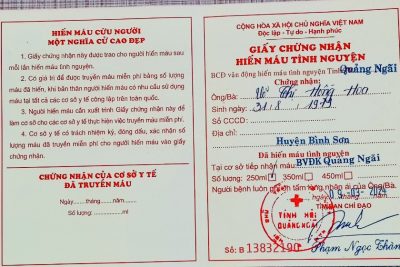 HIẾN MÁU CỨU NGƯỜI
MỘT NGHĨA CỬ CAO ĐẸP
1. Giấy chứng nhận này được trao cho người hiến máu sau
mỗi lần hiến máu tình nguyện.
2. Có giá trị để được truyền máu miễn phí bằng số lượng
máu đã hiến, khi bản thân người hiến có nhu cầu sử dụng
máu tại tất cả các cơ sở y tế công lập trên toàn quốc.
3. Người hiến máu cần xuất trình Giấy chứng nhận này để
làm cơ sở cho các cơ sở y tế thực hiện việc truyền máu miễn phí.
4. Cơ sở y tế có trách nhiệm ký, đóng dấu, xác nhận số lượng
máu đã truyền miễn phí cho người hiến máu vào giấy
chứng nhận.
CHỨNG NHẬN CỦA CƠ SỞ Y TẾ
ĐÃ TRUYỀN MÁU
Ngày.......tháng.......năm.......
Số lượng:.......ml
CỘNG HÒA XÃ HỘI CHỦ NGHĨA VIỆT NAM
Độc lập - Tự do - Hạnh phúc
GIẤY CHỨNG NHẬN
HIẾN MÁU TÌNH NGUYỆN
BCĐ vận động hiến máu tình nguyện Tỉnh Quảng Ngãi
Chứng nhận:
Ông/Bà: Thị Hồng Hoa
Sinh ngày: 31/8/1979
Số CCCD:
Địa chỉ:
Huyện Bình Sơn
Đã hiến máu tình nguyện
Tại cơ sở tiếp nhận máu: BVĐK Quảng Ngãi
Số lượng: 250ml 350ml 450ml
Người bệnh luôn ghi ơn tấm lòng nhân ái của Ông/Bà.
09-03-2024
TM BAN CHỈ ĐẠO
TỈNH HỘI
QUẢNG NGÃI
Số: B 13832190
Phạm Ngọc